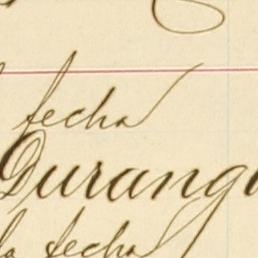 fecha
Durang
la fecha